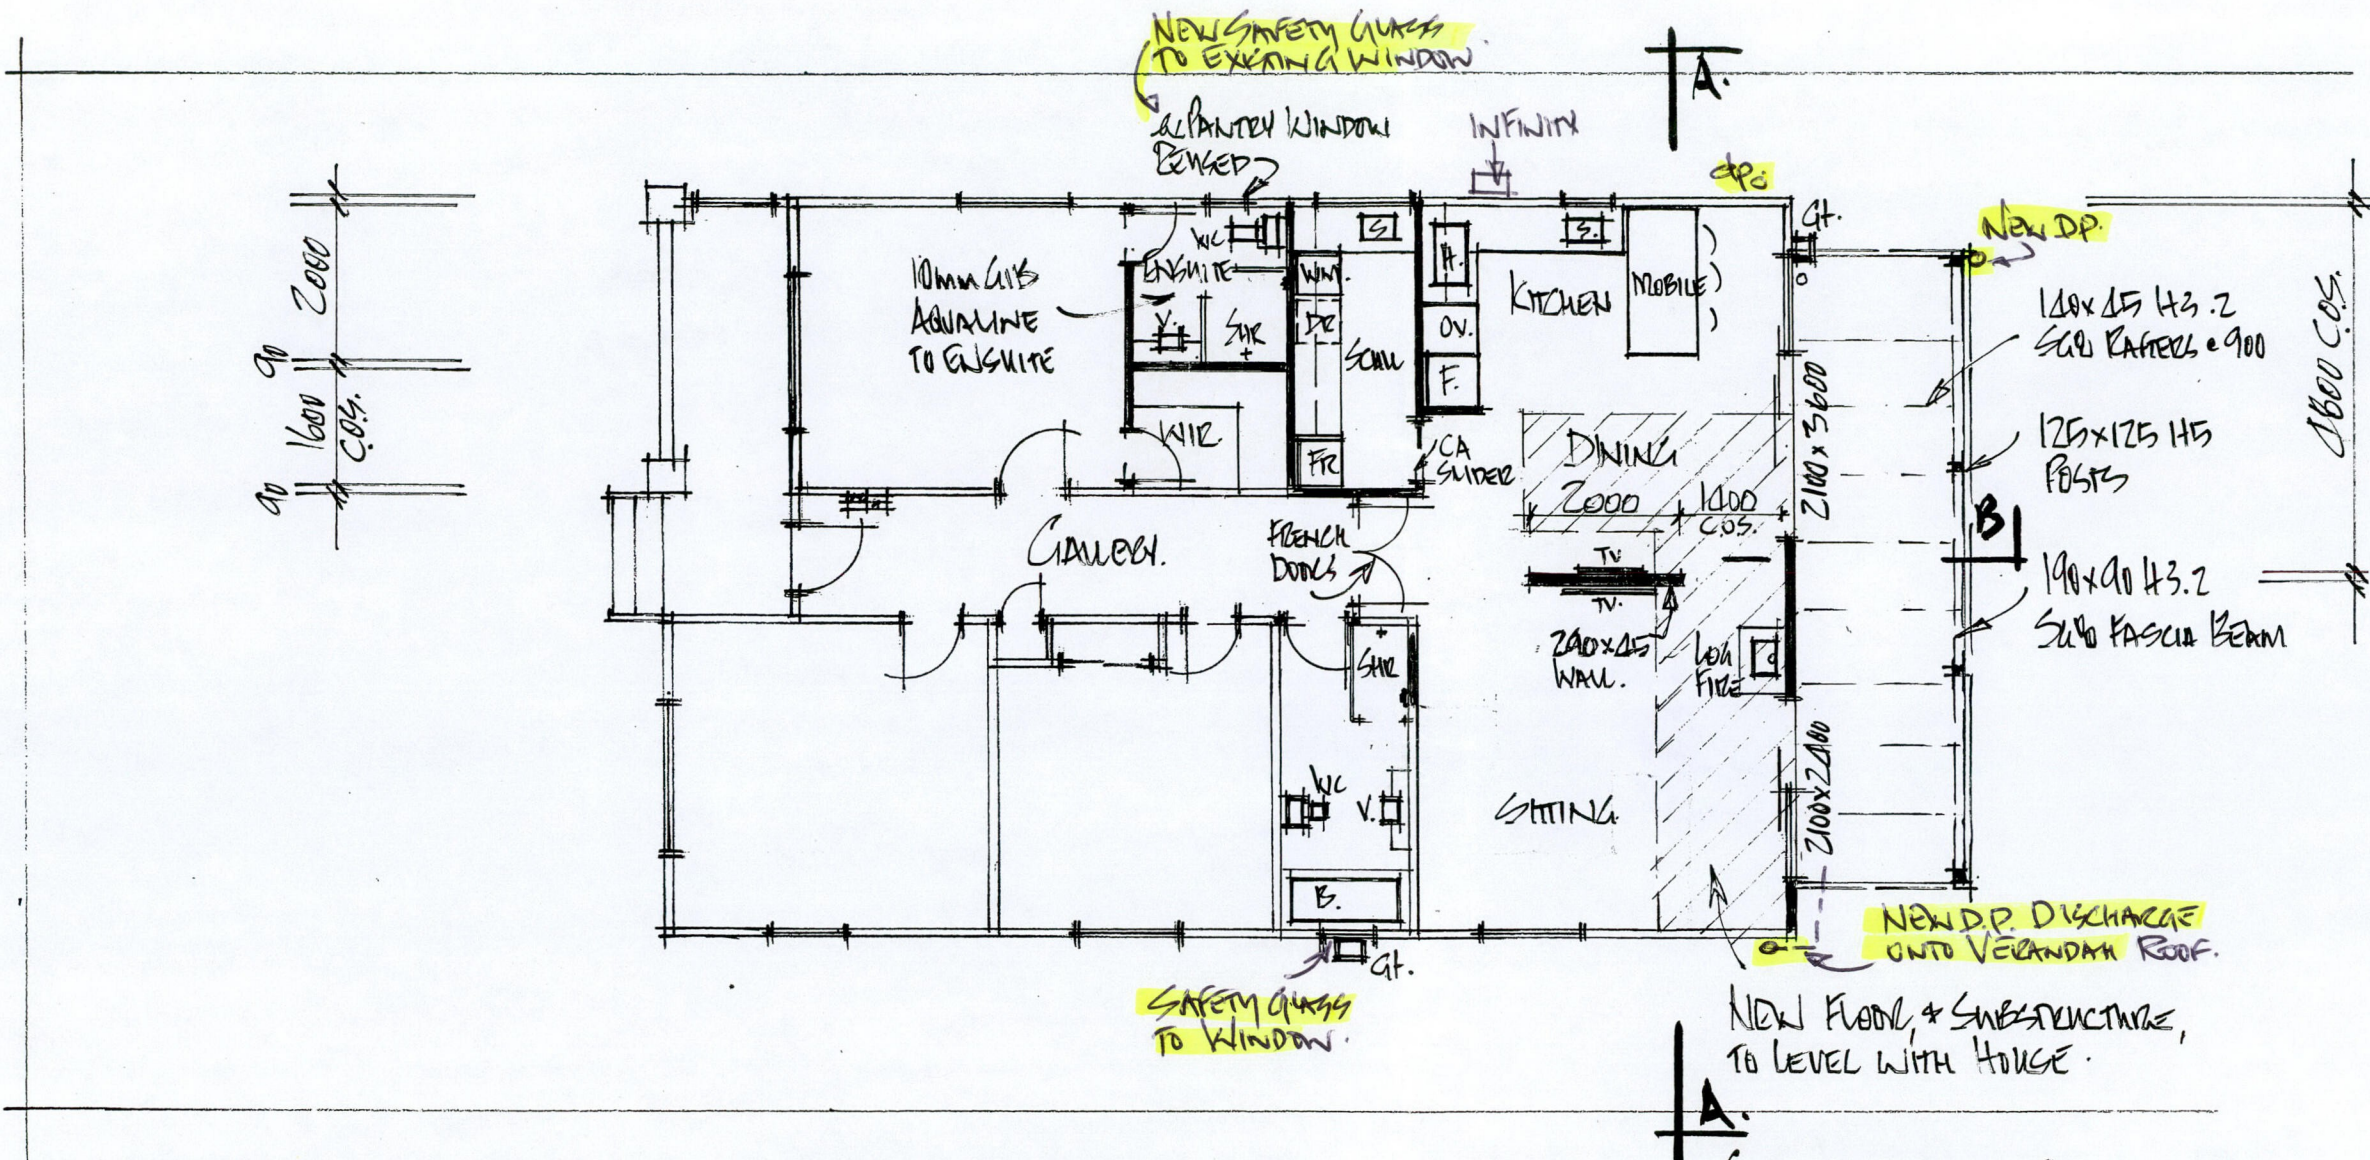 NEW SAFETY GLASS
TO EXISTING WINDOW
& PANTRY WINDOW
REUSED
INFINITY
A.
DP
Gt.
NEW D.P.
2000
90
1600
C.O.S.
90
10mm GIB
AQUALINE
TO ENSUITE
WC
ENSUITE
V.
SHR
WIR
S
WM.
DR
SCULL
FR
H.
OV.
F.
S.
KITCHEN
MOBILE
CA
SLIDER
DINING
2000
1400
C.O.S.
2100 x 3600
140x45 H3.2
SG8 RAFTERS @ 900
125x125 H5
POSTS
B
190x90 H3.2
SG8 FASCIA BEAM
C.O.S.
GALLERY.
FRENCH
DOORS
TV
TV.
240x45
WALL.
LOG
FIRE
SHR
WC
V.
B.
SITTING.
2100x2400
Gt.
SAFETY GLASS
TO WINDOW.
NEW D.P. DISCHARGE
ONTO VERANDAH ROOF.
NEW FLOOR, & SUBSTRUCTURE,
TO LEVEL WITH HOUSE.
A.